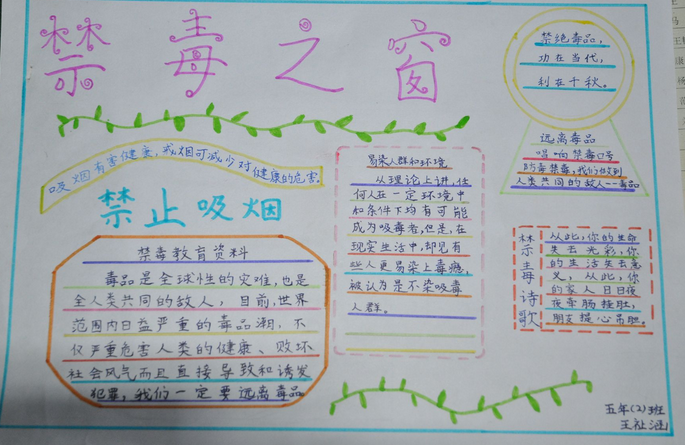 禁毒之窗
禁绝毒品,
功在当代,
利在千秋。
远离毒品
唱响禁毒口号
防毒禁毒,我们做到
人类共同的敌人--毒品
吸烟有害健康,戒烟可减少对健康的危害。
禁止吸烟
禁毒教育资料
毒品是全球性的灾难,也是
全人类共同的敌人,目前,世界
范围内日益严重的毒品潮,不
仅严重危害人类的健康、败坏
社会风气而且直接导致和诱发
犯罪,我们一定要远离毒品
易染人群和环境
从理论上讲,任
何人在一定环境中
和条件下均有可能
成为吸毒者,但是,在
现实生活中,却见有
些人更易染上毒瘾,
被认为是不染吸毒
人群。
禁毒诗歌
从此,你的生命
失去光彩,你
的生活失去意
义,从此,你
的家人日日夜
夜牵肠挂肚,
朋友提心吊胆。
五年(2)班
王祉涵